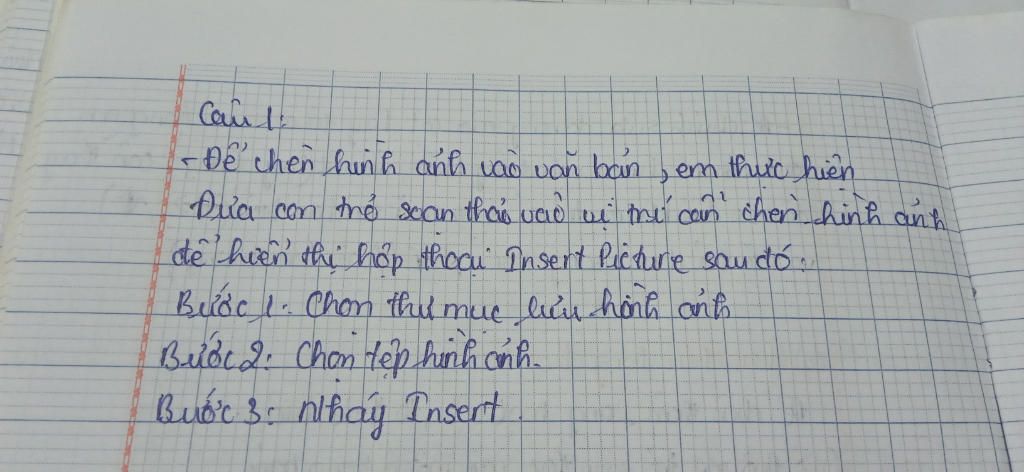 Câu 1:
- Để chèn hình ảnh vào văn bản, em thực hiện
Đưa con trỏ soạn thảo vào vị trí cần chèn hình ảnh
để hiển thị hộp thoại Insert Picture sau đó:
Bước 1: Chọn thư mục lưu hình ảnh
Bước 2: Chọn tệp hình ảnh.
Bước 3: Nháy Insert.